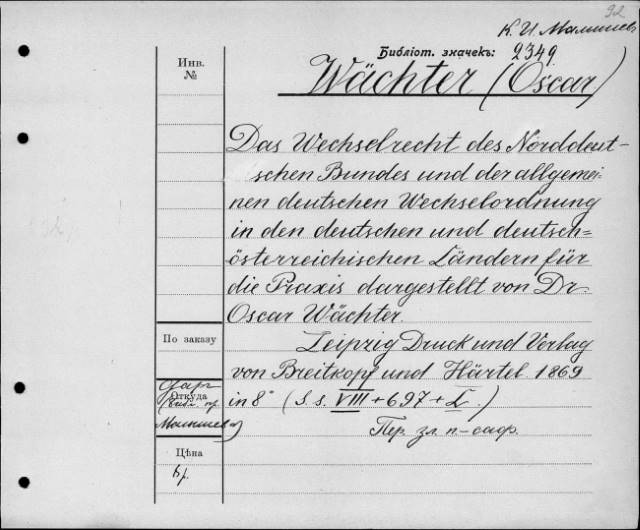 92
К. И. Малышев
Библіот. значекъ: 2349
Инв.
№
Wächter (Oscar)
Das Wechselrecht des Norddeut-
schen Bundes und der allgemei-
nen deutschen Wechselordnung
in den deutschen und deutsch=
österreichischen Ländern für
die Praxis dargestellt von Dr.
Oscar Wächter.
По заказу
Leipzig Druck und Verlag
von Breitkopf und Härtel 1869
in 8° (S. s. VIII + 697 + L.)
Откуда
Малышева)
Пер. зл. п-саф.
Цѣна